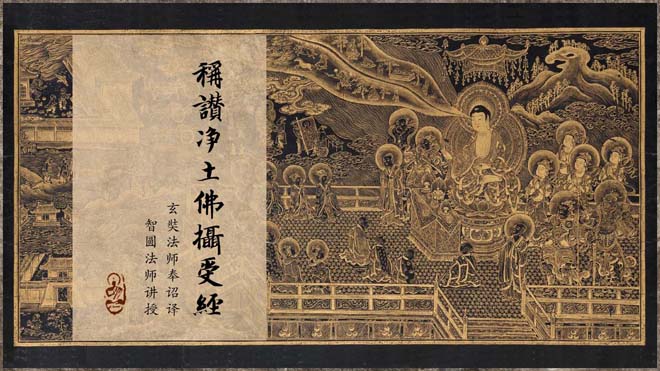 稱讚净土佛攝受經
玄奘法师奉诏译
智圓法师讲授